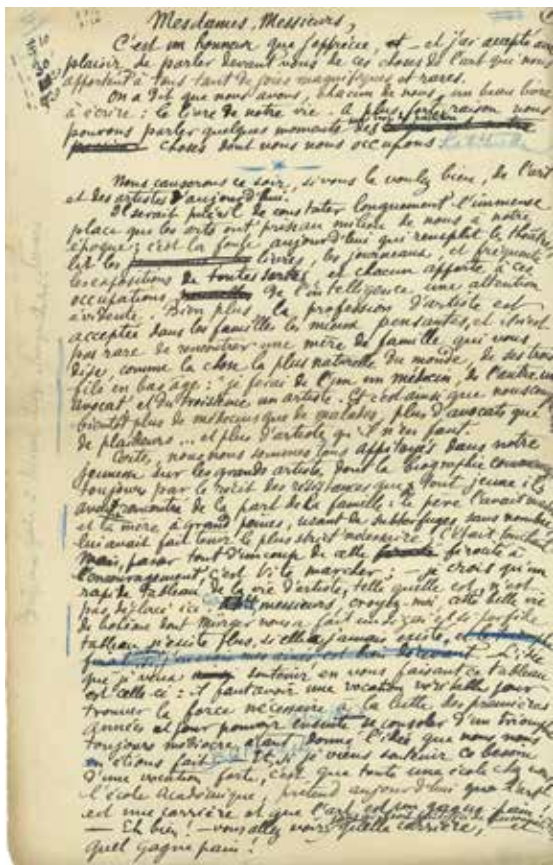 Mesdames, Messieurs,
C'est un honneur que j'apprécie, et – et j'ai accepté au
plaisir de parler devant vous de ces choses de l'art qui nous
apportent à tous tant de joies magnifiques et rares.
On a dit que nous avons, chacun de nous, un beau livre
à écrire : le livre de notre vie. A plus forte raison nous
pouvons parler quelques moments des
choses dont nous nous occupons
Nous causerons ce soir, si vous le voulez bien, de l'art
et des artistes d'aujourd'hui.
Il serait puéril de constater longuement l'immense
place que les arts ont pris au milieu de nous à notre
époque ; c'est la foule aujourd'hui qui remplit le théâtre
lit les livres, les journaux, et fréquente
les expositions de toutes sortes, et chacun apporte à ces
occupations de l'intelligence une attention
évidente. Bien plus la profession d'artiste est
acceptée dans les familles les mieux pensantes, et il n'est
pas rare de rencontrer une mère de famille qui vous
dise, comme la chose la plus naturelle du monde, de ses trois
fils en bas âge : "je ferai de l'un un médecin, de l'autre un
avocat et du troisième un artiste". Et c'est ainsi que nous aurons
bientôt plus de médecins que de malades, plus d'avocats que
de plaideurs ... et plus d'artistes qu'il n'en faut.
Certe, nous nous sommes tous appitoyés dans notre
jeunesse sur les grands artistes dont la biographie commence
toujours par le récit des résistances que tout jeune ils
avaient rencontré de la part de la famille : le père
et la mère à grand peines, usant de subterfuges sans nombre,
lui avait fait tenir le plus strict nécessaire. C'était touchant
Mais, passer tout d'un coup de cette féroute à
l'encouragement, c'est vite marcher, – je crois qu'un
rapide tableau de la vie d'artiste, telle quelle est, n'est
pas déplacé ici messieurs, croyez-moi, cette belle vie
de bohème dont Murger nous a fait un si gai et si
tableau n'existe plus, si elle a jamais existé, et
L'idée
que je veux soutenir en vous faisant ce tableau
est celle-ci : il faut avoir une vocation véritable pour
trouver la force nécessaire à la lutte des premières
années et pour pouvoir ensuite se consoler d'un triomphe
toujours médiocre, étant donné l'idée que nous nous
en étions fait. Et, si je viens soutenir ce besoin
d'une vocation forte, c'est que toute une école chez nous
l'école académique, prétend aujourd'hui que l'art
est une carrière et que l'art est son gagne pain !
– Eh bien ! – vous allez voir quelle carrière, et
quel gagne pain !